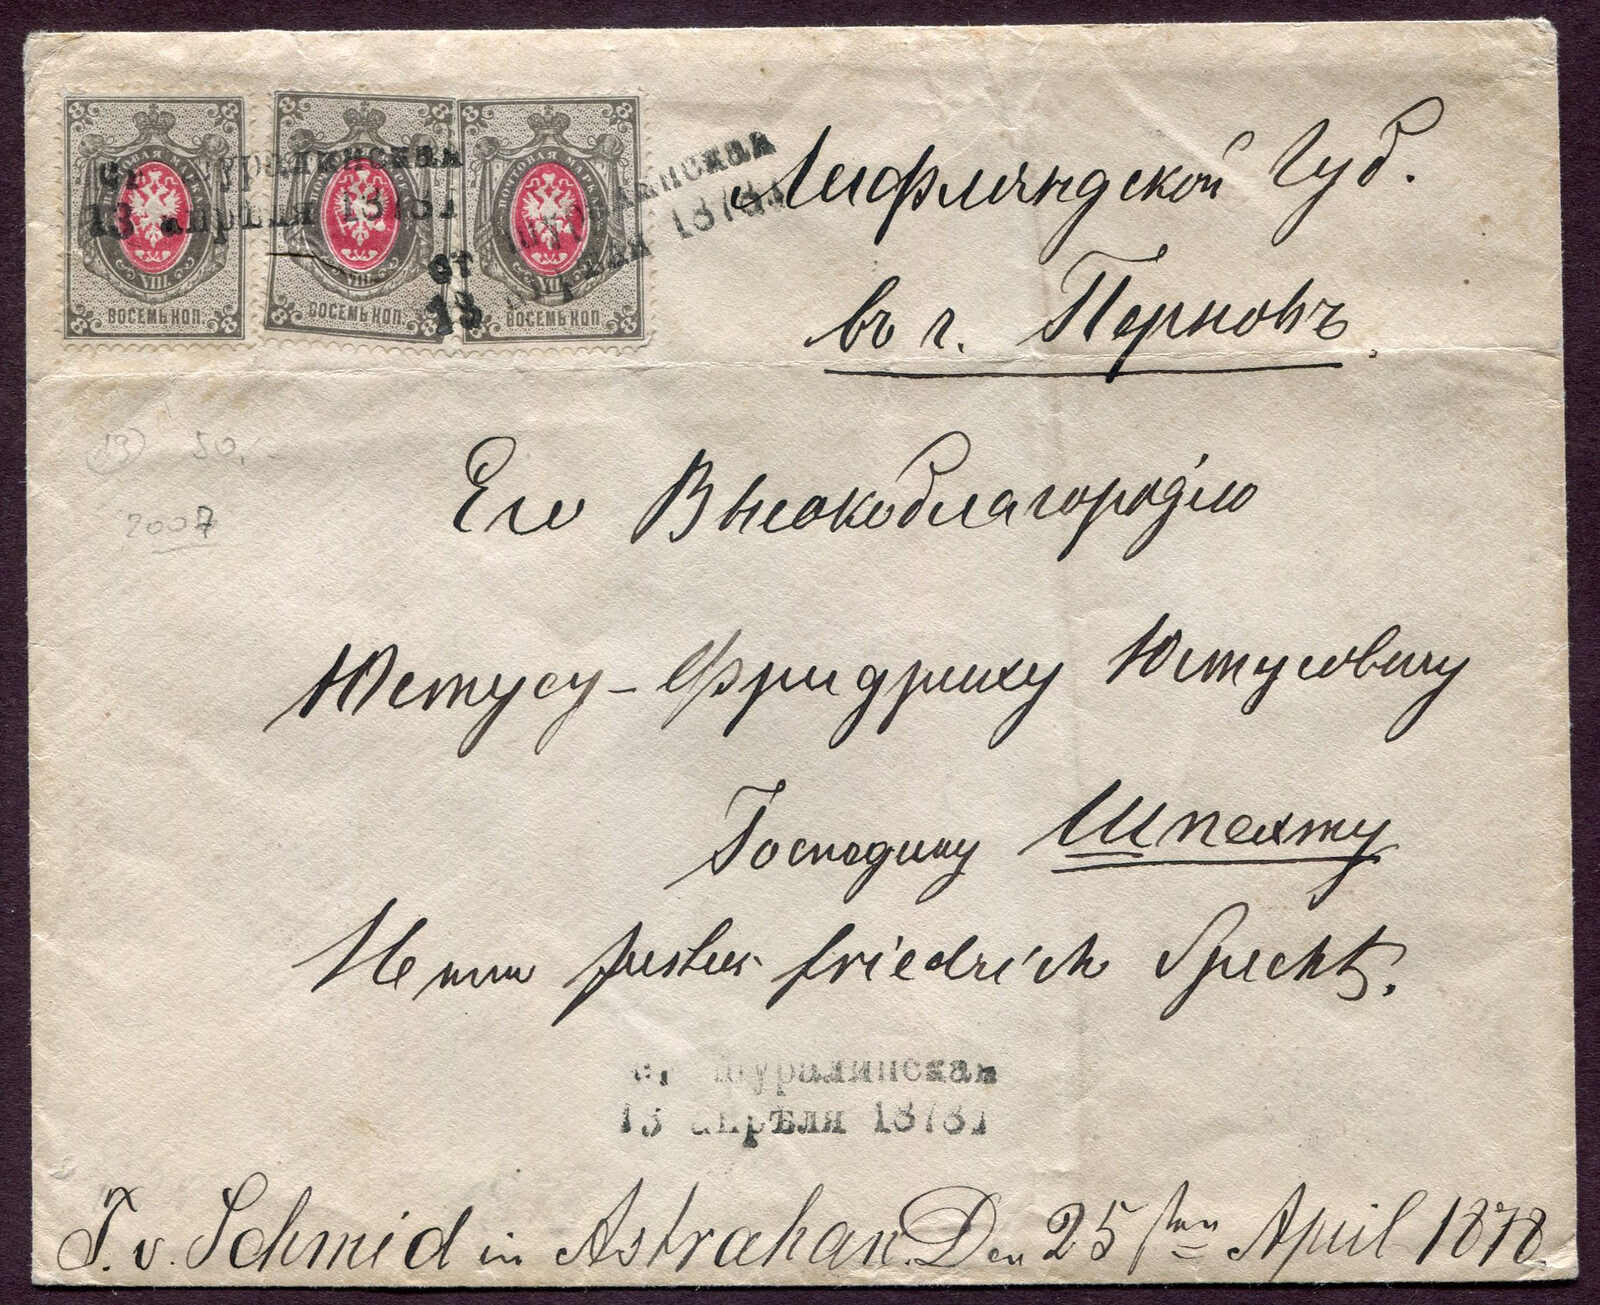 ПОЧТОВАЯ МАРКА
VIII
ВОСЕМЬ КОП.
ПОЧТОВАЯ МАРКА
VIII
ВОСЕМЬ КОП.
ПОЧТОВАЯ МАРКА
VIII
ВОСЕМЬ КОП.
ст шуралинская
13 апрѣля 18781
ст шуралинская
13 апрѣля 18781
Лифляндской Губ.
въ г. Перновъ
13 50,-
2007
Его Высокоблагородію
Юстусу-Фридриху Юстусовичу
Господину Шпехту
Herrn Justus Friedrich Specht.
ст шуралинская
13 апрѣля 18781
T. v. Schmid in Astrahan. Den 25 ten April 1878